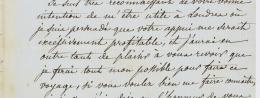 Je suis très reconnaissant de votre bonne
intention de m'être utile à Londres où
je suis persuadé que votre appui me serait
excessivement profitable, et j'aurai en
outre tant de plaisir à vous revoir que
je ferai tout mon possible pour faire ce
voyage, si vous voulez bien me faire connaître,